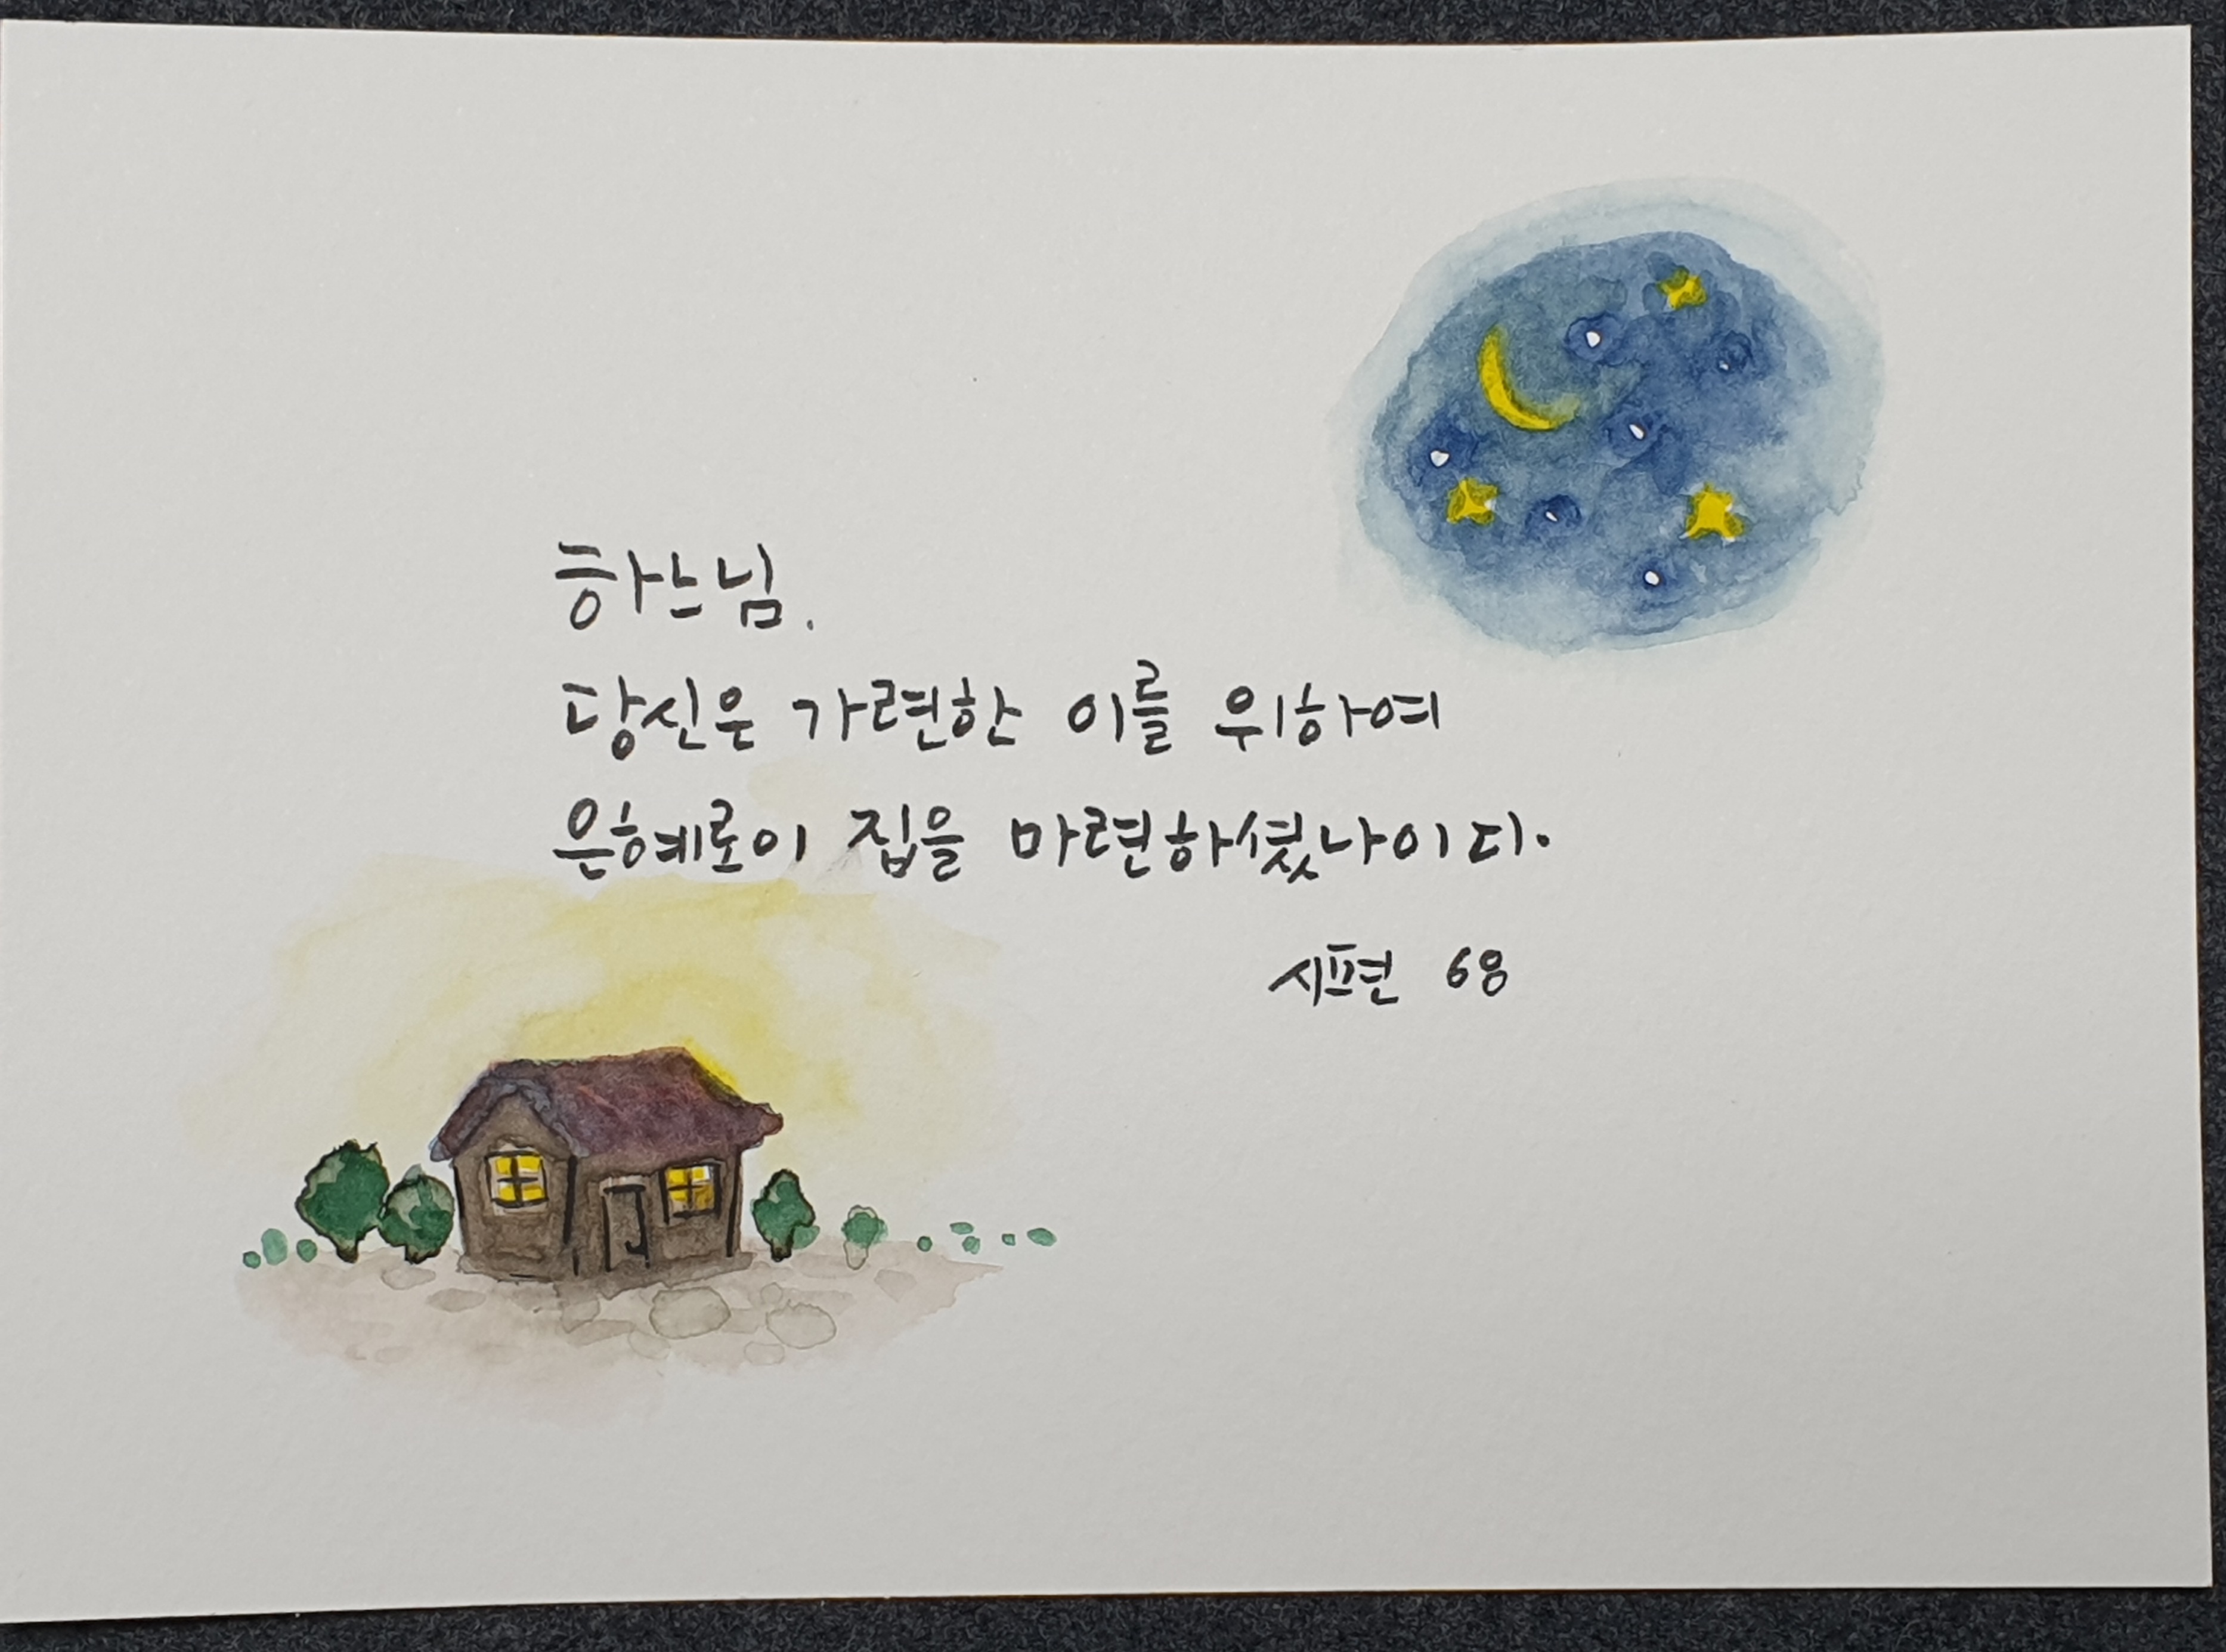 하느님.
당신은 가련한 이를 위하여
은혜로이 집을 마련하셨나이다.
시편 68